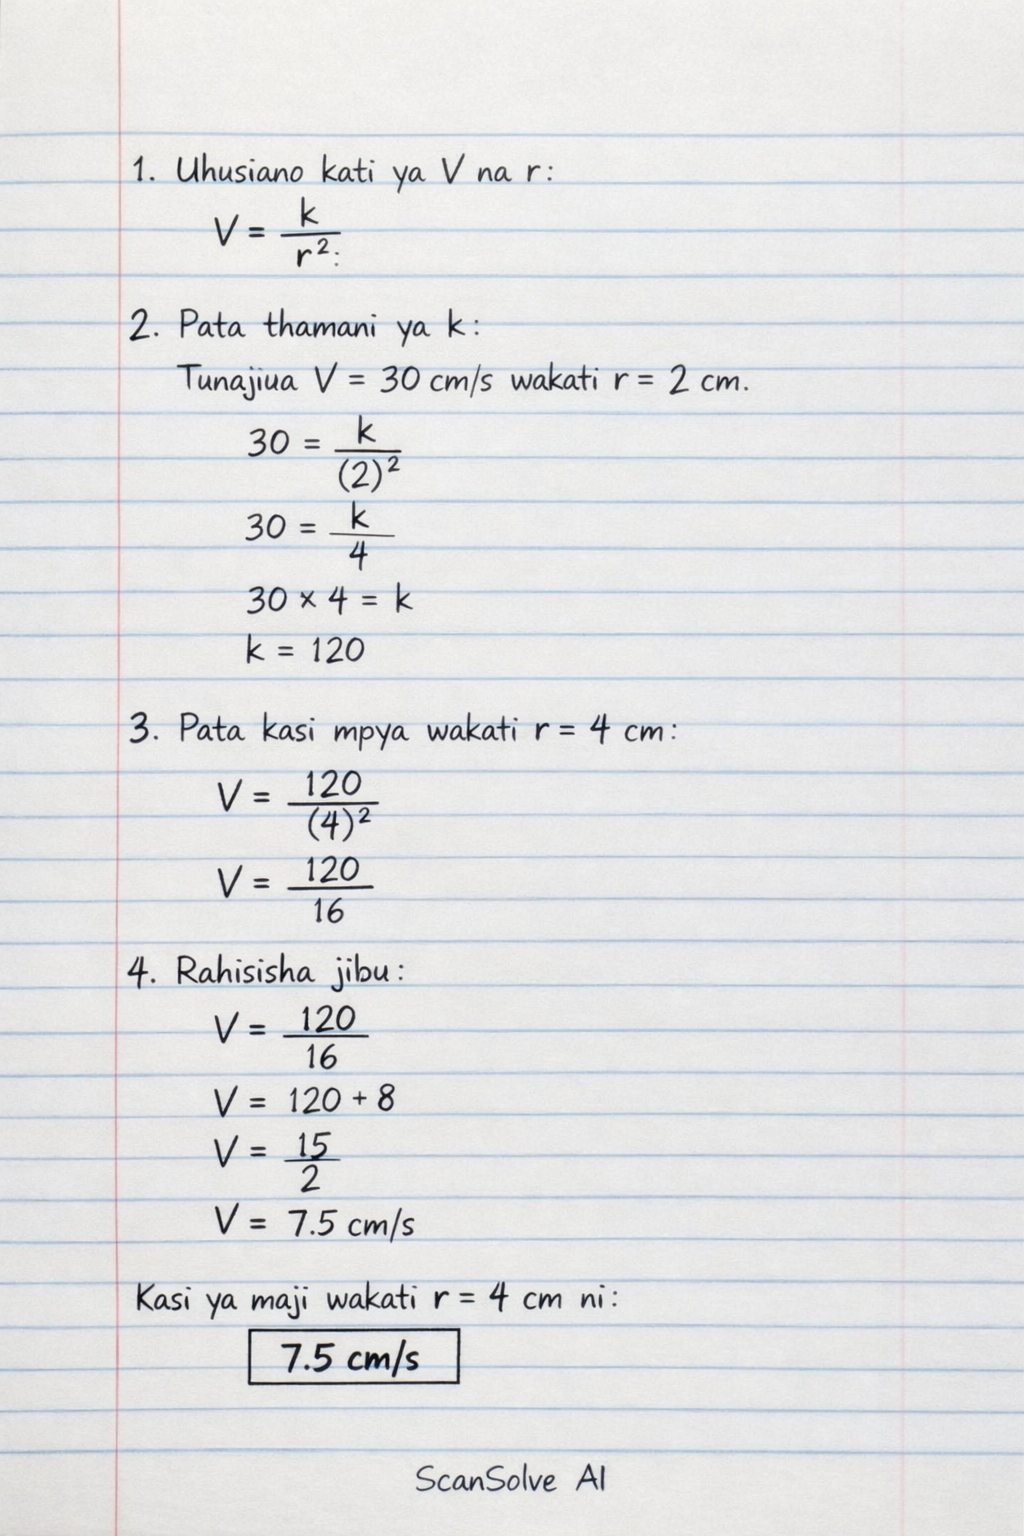 1. Uhusiano kati ya V na r:
V = k / r²:
2. Pata thamani ya k:
Tunajiua V = 30 cm/s wakati r = 2 cm.
30 = k / (2)²
30 = k / 4
30 × 4 = k
k = 120
3. Pata kasi mpya wakati r = 4 cm:
V = 120 / (4)²
V = 120 / 16
4. Rahisisha jibu:
V = 120 / 16
V = 120 + 8
V = 15 / 2
V = 7.5 cm/s
Kasi ya maji wakati r = 4 cm ni:
7.5 cm/s
ScanSolve AI